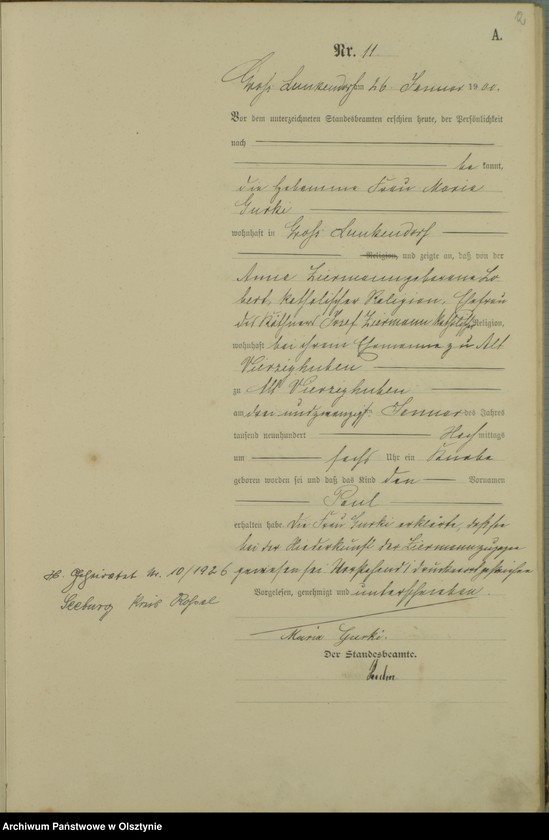 2
A.
Nr. 11
Groß Lemkendorf am 26 Januar 1900.
Vor dem unterzeichneten Standesbeamten erschien heute, der Persönlichkeit
nach
be kannt,
die Hebamme Frau Maria
Gurki
wohnhaft in Groß Lemkendorf
Religion, und zeigte an, daß von der
Anna Ziermann geborene
bert, katholischer Religion, Ehefrau
des Käthners Josef Ziermann katholischer Religion,
wohnhaft bei ihrem Ehemanne zu Alt
Vierzighuben
zu Alt Vierzighuben
am Januar des Jahres
tausend neunhundert Nach mittags
um sechs Uhr ein Knabe
geboren worden sei und daß das Kind den Vornamen
Paul
erhalten habe. Die Frau Gurki erklärte, daß sie
bei der Niederkunft der Ziermann zugegen
gewesen sei. Vorstehend 1 Druckwort gestrichen
Vorgelesen, genehmigt und unterschrieben
Maria Gurki.
Der Standesbeamte.
H. Geheiratet Nr. 10/1926
Seeburg Kreis Rößel
Archiwum Państwowe w Olsztynie